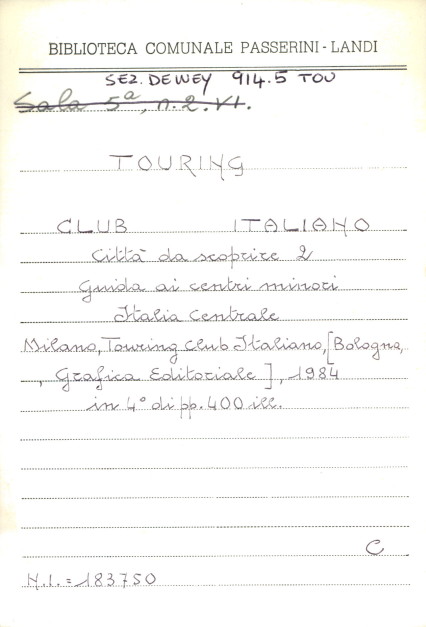 BIBLIOTECA COMUNALE PASSERINI - LANDI
SEZ. DEWEY 914.5 TOU
Sala 5ª, n. 2. VI.
TOURING
CLUB ITALIANO
Città da scoprire 2
Guida ai centri minori
Italia Centrale
Milano, Touring Club Italiano, [Bologna,
, Grafica Editoriale], 1984
in 4° di pp. 400 ill.
C
N.I. = 183750